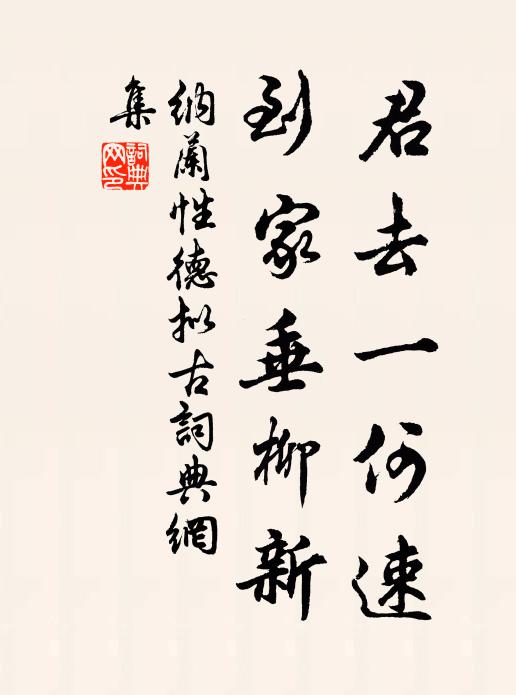 君去一何速
到家垂柳新
納蘭性德拟古詞典網
集
詞典
网印